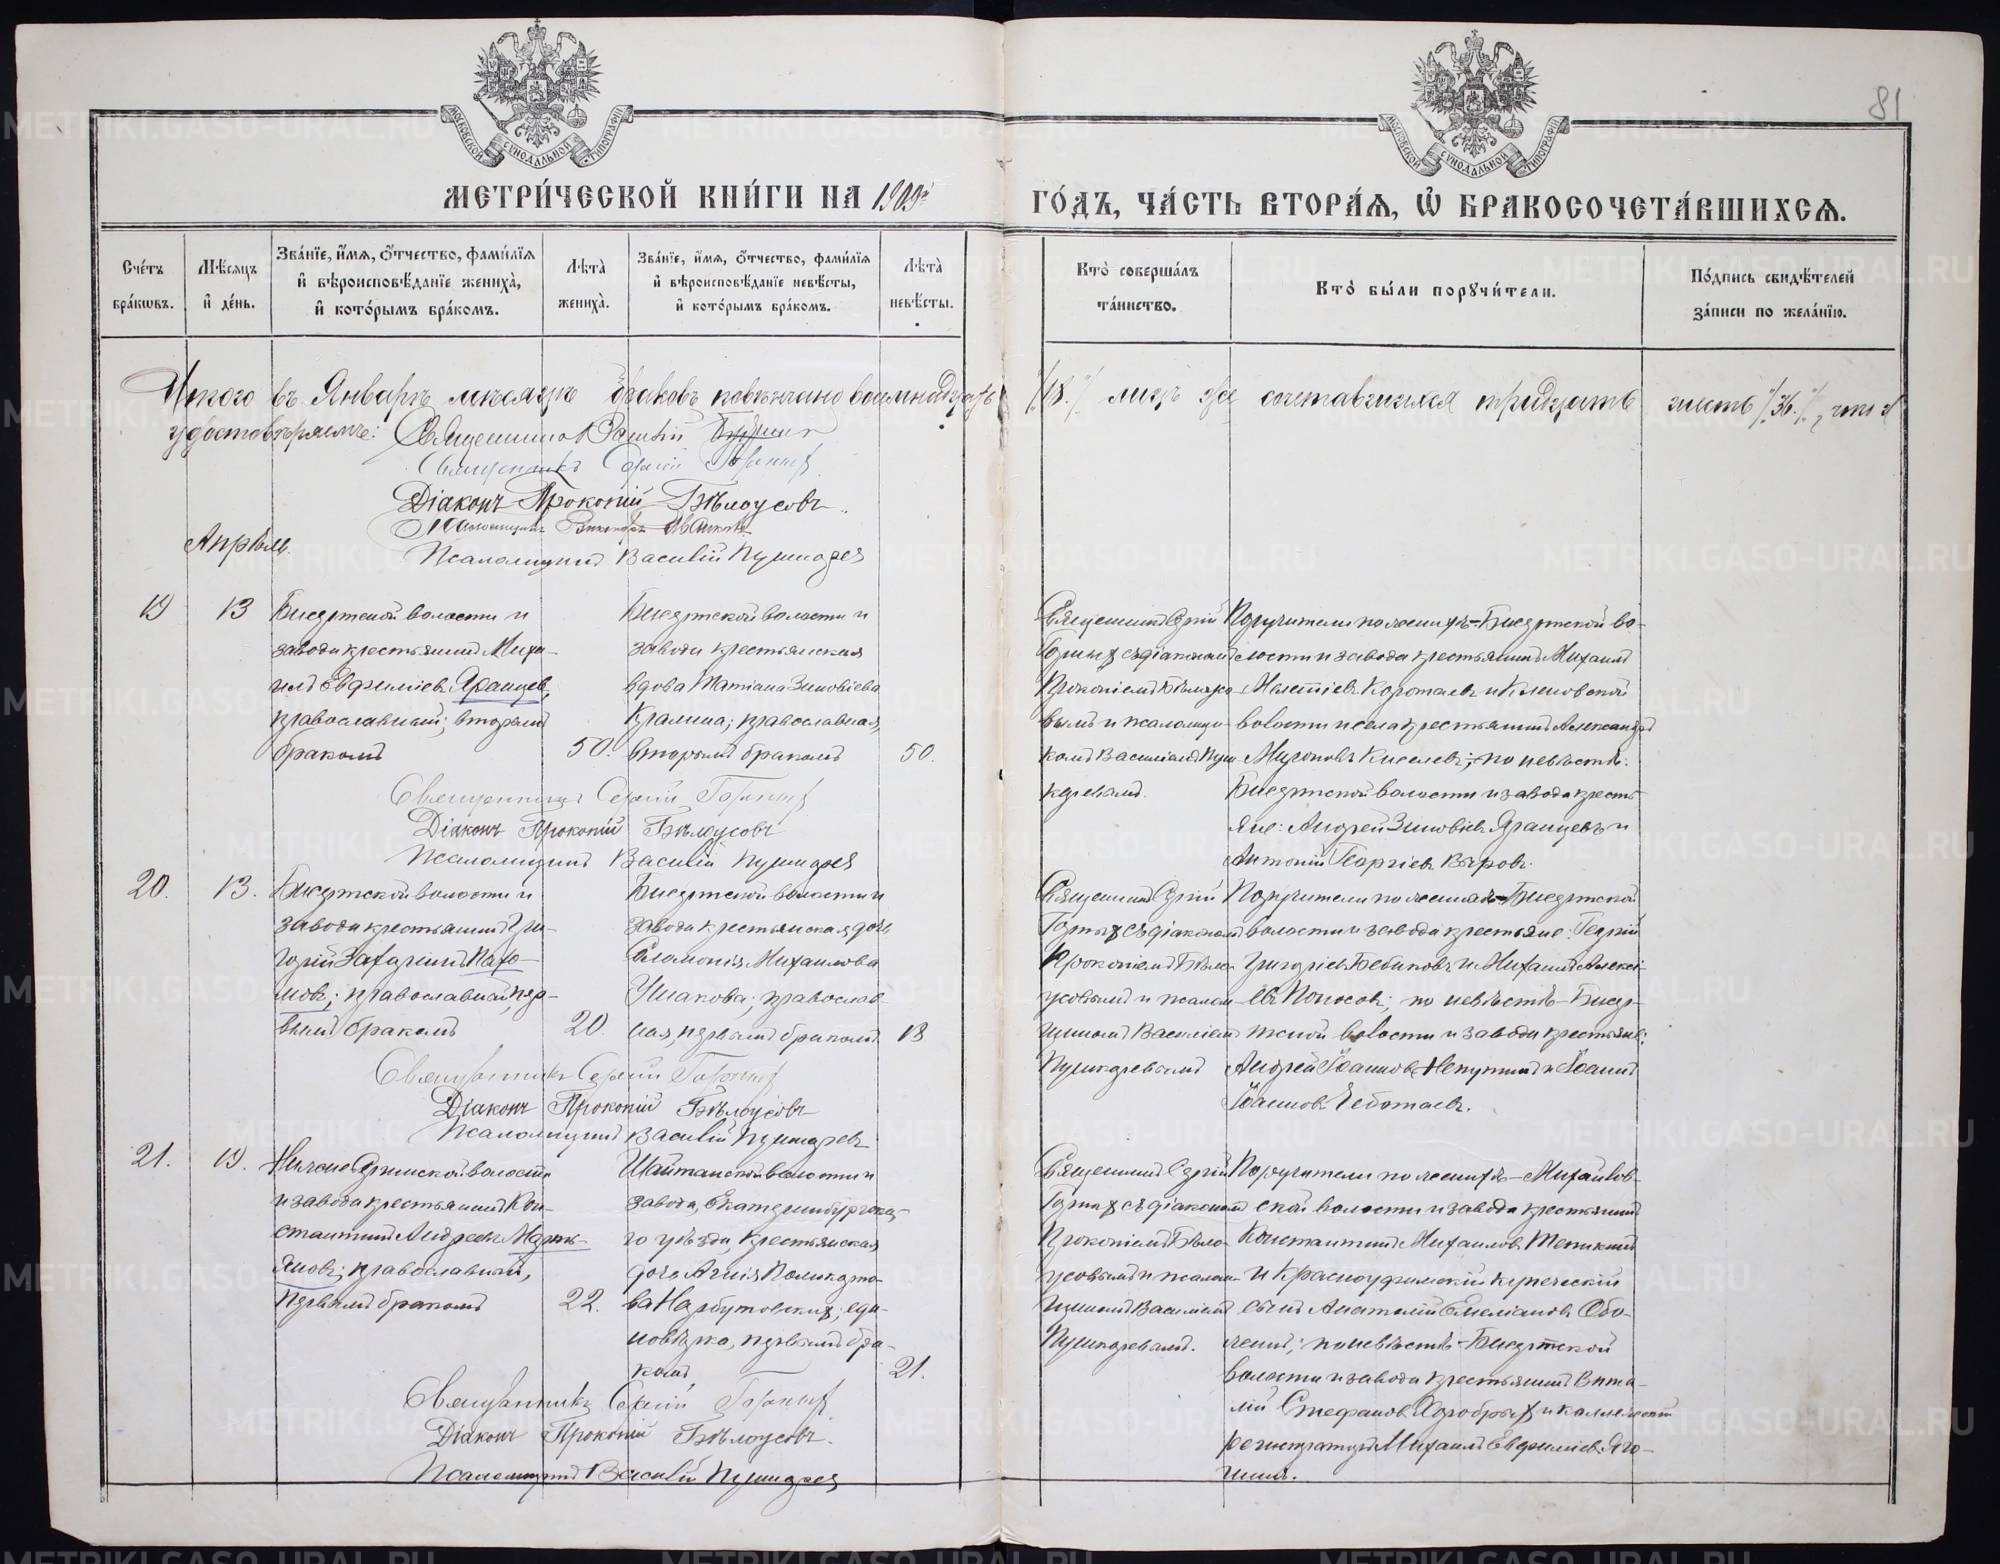 81
МОСКОВСКОЙ СѴНОДАЛЬНОЙ ТИПОГРАФІИ
МОСКОВСКОЙ СѴНОДАЛЬНОЙ ТИПОГРАФІИ
МЕТРИ́ЧЕСКОЙ КНИ́ГИ НА 1909й ГО́ДЪ, ЧА́СТЬ ВТОРА́Ѧ, Ѡ҆ БРАКОСОЧЕТА́ВШИХСѦ.
Сче́тъ бра́кѡвъ.
Мѣ́сяцъ и҆ де́нь.
Зва́нїе, и҆́мѧ, ѻ҆́тчество, фами́лїѧ
и҆ вѣроисповѣ́данїе жениха̀,
и҆ кото́рымъ бра́комъ.
Лѣ́та̀ жениха̀.
Зва́нїе, и҆́мѧ, ѻ҆́тчество, фами́лїѧ
и҆ вѣроисповѣ́данїе невѣ́сты,
и҆ кото́рымъ бра́комъ.
Лѣ́та̀ невѣ́сты.
Кто̀ соверша́лъ та́инство.
Кто̀ бы́ли порꙋчи́тели.
По́дпись свидѣ́телей за́писи по жела́нїю.
Итого въ Январѣ мѣсяцѣ браковъ повѣнчано восемнадцать /18./ лицъ же сочетавшихся тридцать шесть /36./, что и
удостовѣряемъ: Священникъ Василій
Священникъ Сергій
Діаконъ Прокопій Бѣлоусовъ.
Псаломщикъ
Псаломщикъ Василій Пушкаревъ
Апрѣль.
19
13
Бисертской волости и
завода крестьянинъ Миха-
илъ Евфиміевъ Яранцевъ,
православный; вторымъ
бракомъ
50.
Бисертской волости и
завода крестьянская
вдова Татіана Зиновіева
православная,
вторымъ бракомъ
50.
Священникъ Сергій
съ діакономъ
Прокопіемъ Бѣлоусо-
вымъ и псаломщи-
комъ Василіемъ Пуш-
каревымъ.
Поручители по женихѣ – Бисертской во-
лости и завода крестьянинъ Михаилъ
Коротаевъ и Кленовской
волости и села крестьянинъ Александръ
Мироновъ Киселевъ; – по невѣстѣ:
Бисертской волости и завода кресть-
яне: Андрей Зиновіевъ Яранцевъ и
Антоній Георгіевъ
Священникъ Сергій
Діаконъ Прокопій Бѣлоусовъ
Псаломщикъ Василій Пушкаревъ
20.
13.
Бисертской волости и
завода крестьянинъ Гри-
горій Захаріинъ Пахо-
мовъ; православный, пер-
вымъ бракомъ
20.
Бисертской волости и
завода крестьянская дочь
Соломонія Михаилова
Ушакова; православ-
ная, первымъ бракомъ
18
Священникъ Сергій
съ діакономъ
Прокопіемъ Бѣло-
усовымъ и псалом-
щикомъ Василіемъ
Пушкаревымъ
Поручители по женихѣ – Бисертской
волости и завода крестьяне: Георгій
Григоріевъ Бебиковъ и Михаилъ Алексі-
евъ Поносовъ; по невѣстѣ – Бисер-
тской волости и завода крестьяне:
Андрей Іоанновъ и Іоаннъ
Іоанновъ Чеботаевъ.
Священникъ Сергій
Діаконъ Прокопій Бѣлоусовъ
Псаломщикъ Василій Пушкаревъ
21.
19.
Нижне Сергинской волости
и завода крестьянинъ Кон-
стантинъ Андреевъ Марть-
яновъ; православный,
первымъ бракомъ
22.
Шайтанской волости и
завода, Екатеринбургска-
го уѣзда, крестьянская
дочь Агнія Поликарпо-
ва Нарбутовскихъ; еди-
новѣрка, первымъ бра-
комъ
21.
Священникъ Сергій
съ діакономъ
Прокопіемъ Бѣло-
усовымъ и псалом-
щикомъ Василіемъ
Пушкаревымъ.
Поручители по женихѣ – Михайлов-
ской волости и завода крестьянинъ
Константинъ Михаиловъ
и Красноуфимскій купеческій
сынъ Анатолій Емеліановъ Обо-
ленцъ; по невѣстѣ – Бисертской
волости и завода крестьянинъ Вита-
лій Стефановъ Хоробрыхъ и коллежскій
регистраторъ Михаилъ Евфиміевъ
Священникъ Сергій
Діаконъ Прокопій Бѣлоусовъ.
Псаломщикъ Василій Пушкаревъ
METRIKI.GASO-URAL.RU